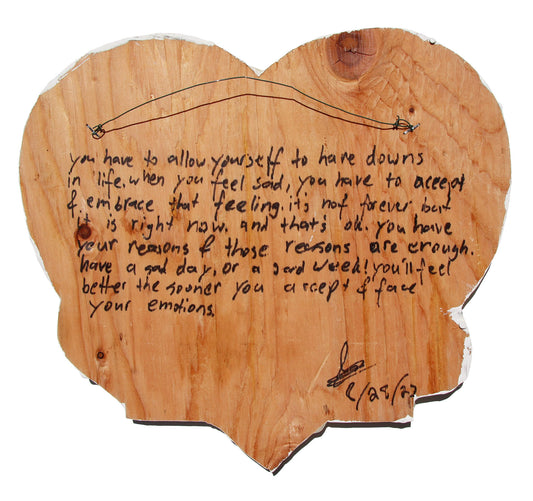 you have to allow yourself to have downs
in life. when you feel sad, you have to accept
& embrace that feeling. it's not forever but
it is right now. and that's ok. you have
your reasons & those reasons are enough.
have a sad day, or a sad week! you'll feel
better the sooner you accept & face
your emotions.